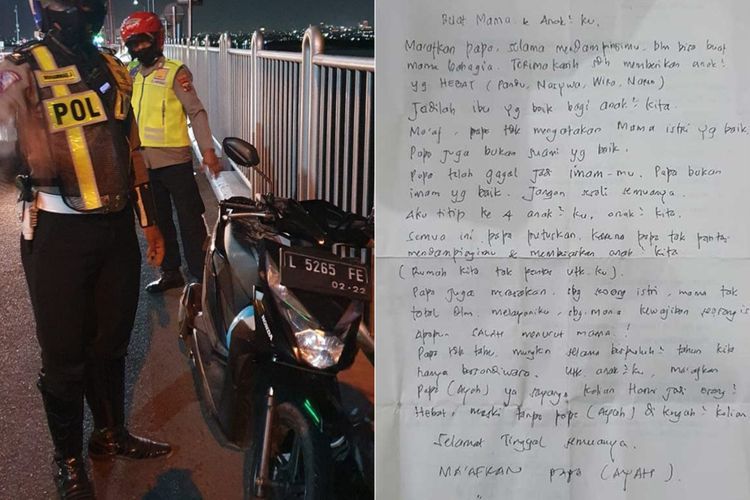 MUHAMMAD.J
POL
L 5265 FE
02·22
HONDA
Buat Mama & Anak² ku.
Maafkan papa, selama mendampingimu. blm bisa buat
mama bahagia. Terimakasih sdh memberikan anak²
yg HEBAT (Pandu, Nasywa, Wira, Naren)
Jadilah ibu yg baik bagi anak² kita.
Ma'af, papa tak mengatakan Mama istri yg baik.
Papa juga bukan suami yg baik.
Papa telah gagal jadi imam-mu. Papa bukan
imam yg baik. Jangan sesali semuanya.
Aku titip ke 4 anak² ku, anak² kita.
Semua ini papa putuskan. Karena papa tak pantas
mendampingimu & membesarkan anak² kita
(Rumah kita tak pantas utk. ku).
Papa juga merasakan. sbg seorang istri, mama tak
total dlm. melayaniku, sbg. mana kewajiban seorang is
Apapun SALAH menurut mama!
Papa tdk tahu. mungkin selama berpuluh² tahun kita
hanya bersandiwara. Utk. anak² ku, maafkan
Papa (Ayah) ya sayang. kalian Harus jadi orang²
Hebat, meski tanpa papa (Ayah) di kalian
Selamat Tinggal semuanya.
MA'AFKAN papa (AYAH).